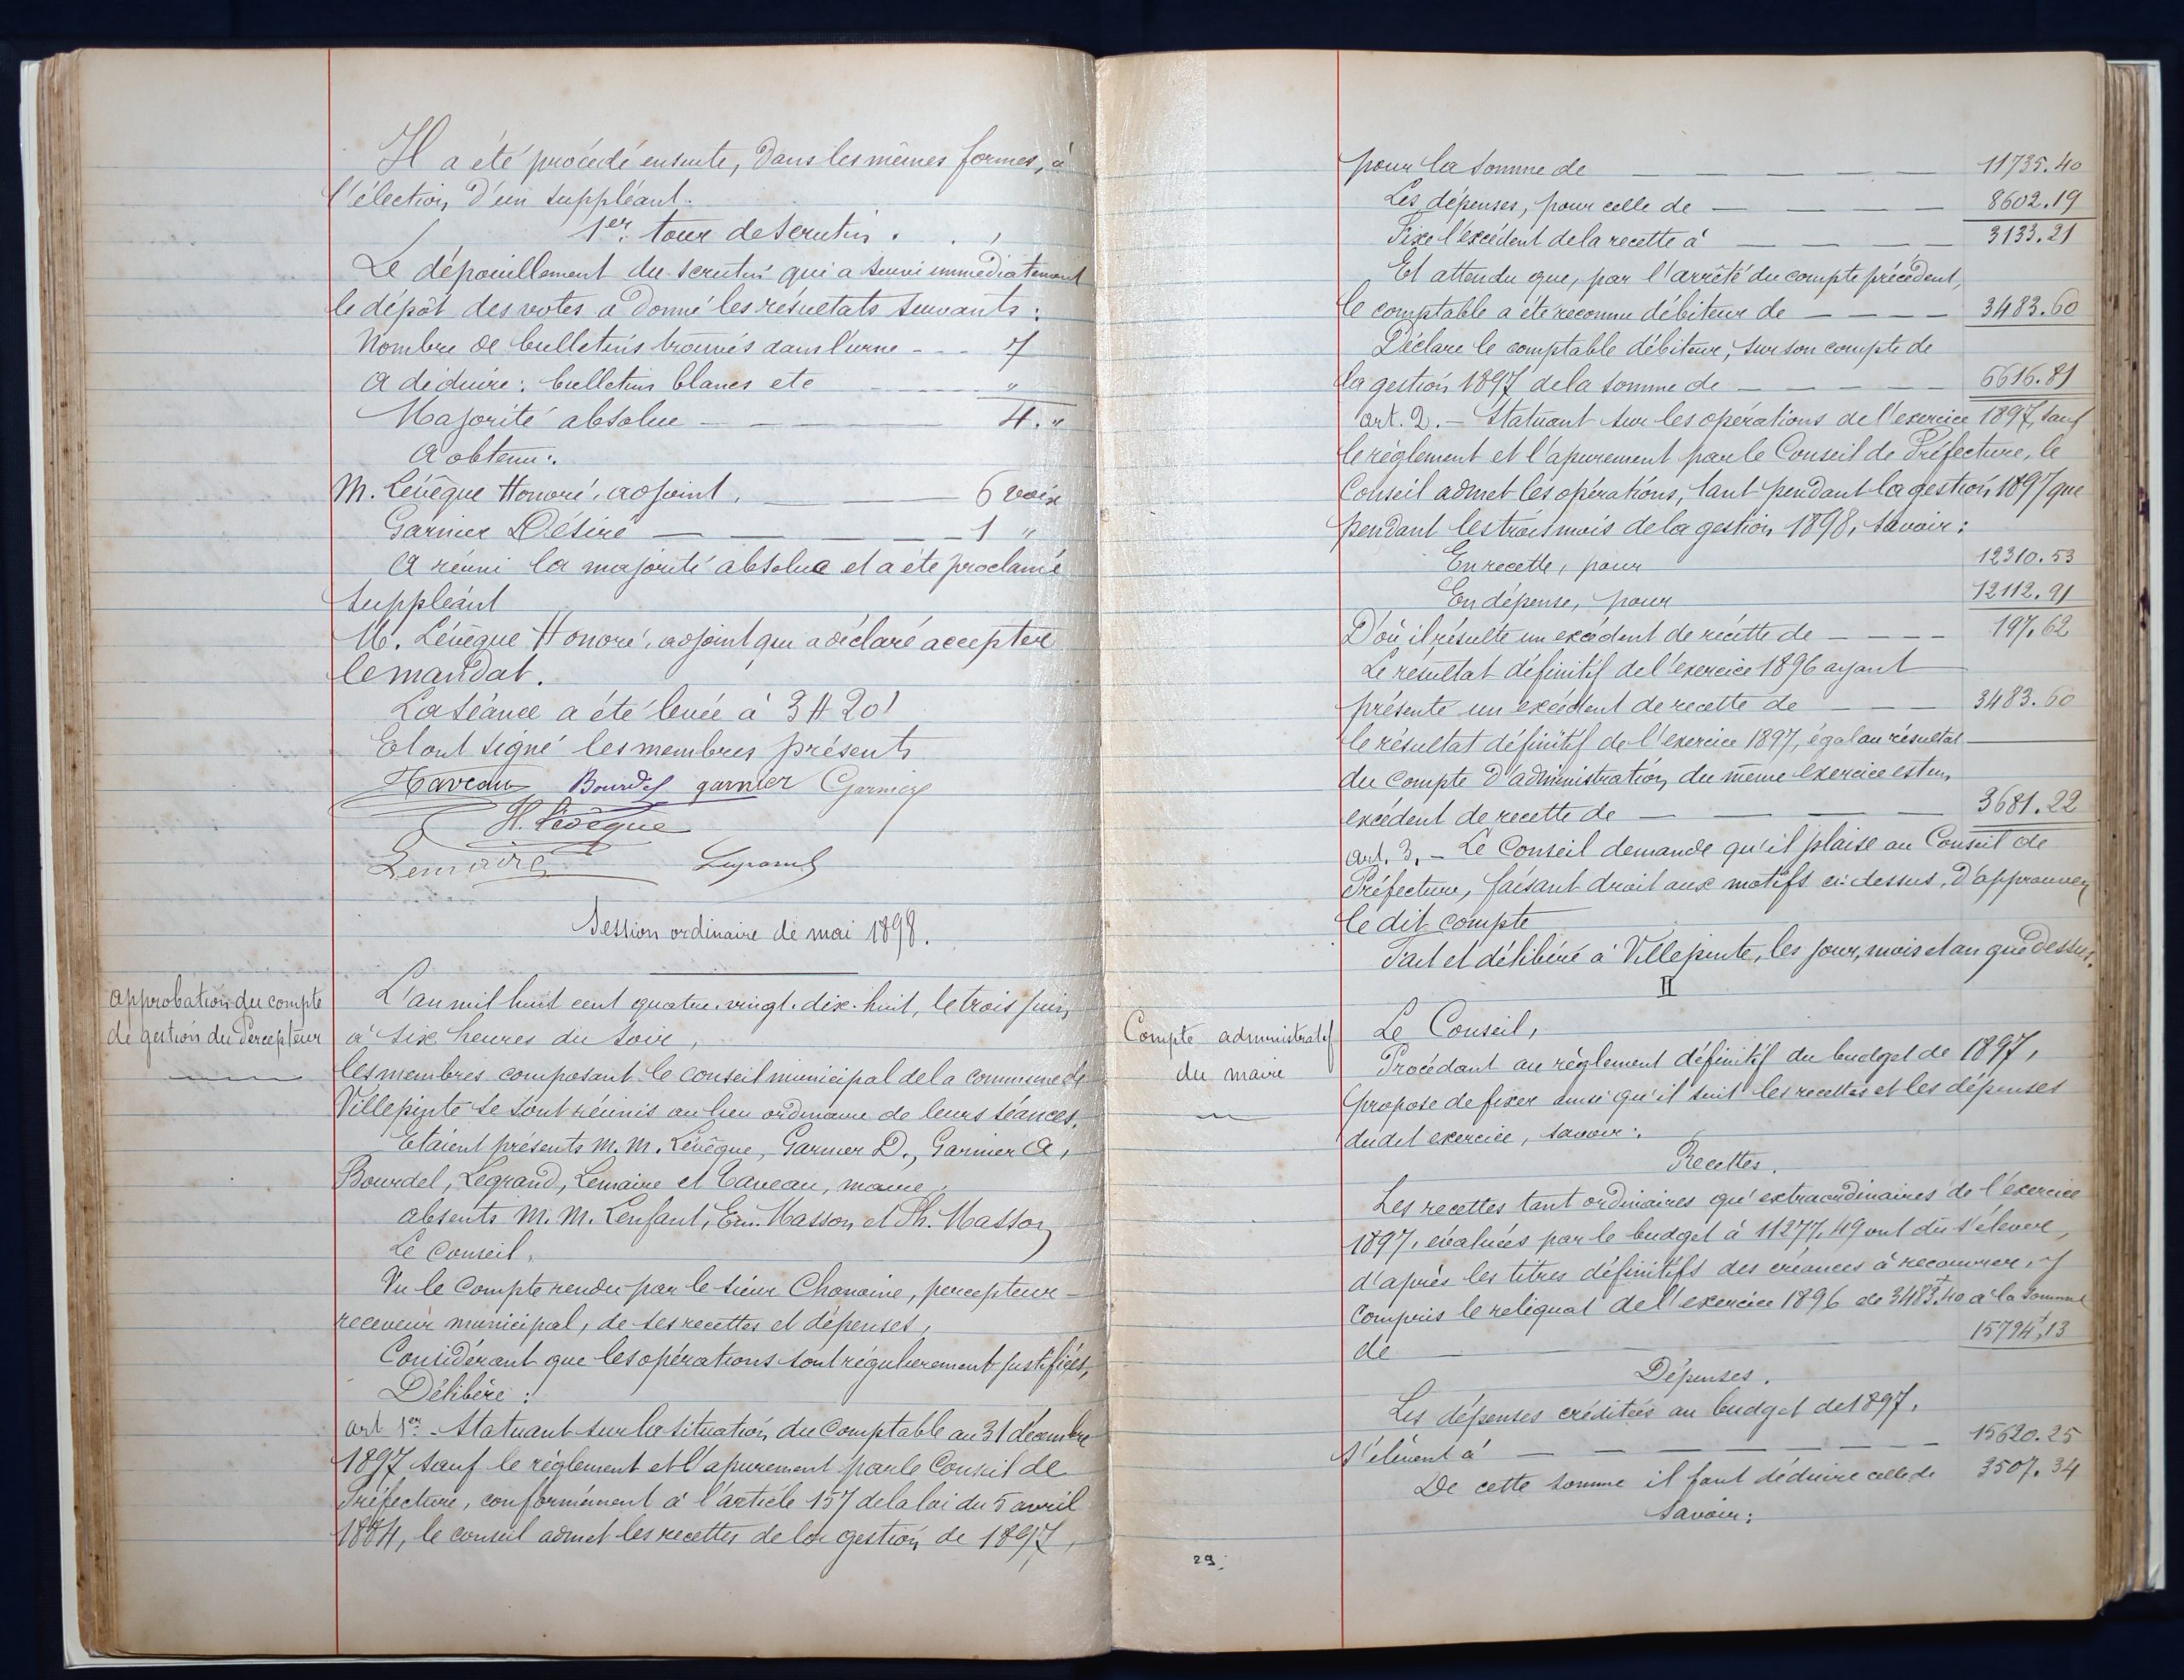 Il a été procédé ensuite, dans les mêmes formes, à
l'élection d'un suppléant.
1er. tour de scrutin.
Le dépouillement du scrutin qui a suivi immédiatement
le dépôt des votes a donné les résultats suivants :
Nombre de bulletins trouvés dans l'urne - - - 7
A déduire : bulletins blancs etc "
Majorité absolue - - - 4. "
A obtenu :
M. Lévêque Honoré, adjoint, 6 voix
Garnier Désiré - - - 1 "
A réuni la majorité absolue et a été proclamé
suppléant
M. Lévêque Honoré, adjoint qui a déclaré accepter
le mandat.
La séance a été levée à 3 H 20'
Et ont signé les membres présents
Taveau Bourdel garnier Garnier
H. Lévêque
Lemaire Legrand
Session ordinaire de mai 1898.
approbation du compte
de gestion du Percepteur
L'an mil huit cent quatre-vingt-dix-huit, le trois juin,
à six heures du soir,
les membres composant le conseil municipal de la commune de
Villepinte se sont réunis au lieu ordinaire de leurs séances.
Etaient présents M. M. Lévêque, Garnier D., Garnier A,
Bourdel, Legrand, Lemaire et Taveau, maire,
absents M. M. Lenfant, Em. Masson et Ph. Masson
Le Conseil,
Vu le Compte rendu par le sieur Chanoine, percepteur-
receveur municipal, de ses recettes et dépenses,
Considérant que les opérations sont régulièrement justifiées,
Délibère :
art 1er. - Statuant sur la situation du Comptable au 31 décembre
1897 sauf le règlement et l'apurement par le Conseil de
Préfecture, conformément à l'article 157 de la loi du 5 avril
1884, le conseil admet les recettes de la gestion de 1897,
pour la somme de - - - 11735.40
Les dépenses, pour celle de - - - 8602.19
Fixe l'excédent de la recette à - - - 3133.21
Et attendu que, par l'arrêté du compte précédent,
le comptable a été reconnu débiteur de - - - 3483.60
Déclare le comptable débiteur, sur son compte de
la gestion 1897 de la somme de - - - 6616.81
art. 2. - Statuant sur les opérations de l'exercice 1897, sauf
le règlement et l'apurement par le Conseil de Préfecture, le
Conseil admet les opérations, tant pendant la gestion 1897 que
pendant les trois mois de la gestion 1898, savoir :
En recette, pour 12310.53
En dépense, pour 12112.91
D'où il résulte un excédent de recette de - - - 197.62
Le résultat définitif de l'exercice 1896 ayant
présenté un excédent de recette de - - - 3483.60
le résultat définitif de l'exercice 1897, égal au résultat
du compte d'administration du même exercice est un
excédent de recette de - - - 3681.22
art. 3. - Le Conseil demande qu'il plaise au Conseil de
Préfecture, faisant droit aux motifs ci-dessus, d'approuver
le dit compte
Fait et délibéré à Villepinte, les jour, mois et an que dessus.
II
Compte administratif
du maire
Le Conseil,
Procédant au règlement définitif du budget de 1897,
propose de fixer ainsi qu'il suit les recettes et les dépenses
dudit exercice, savoir :
Recettes.
Les recettes tant ordinaires qu'extraordinaires de l'exercice
1897, évaluées par le budget à 11277,49 ont dû s'élever,
d'après les titres définitifs des créances à recouvrer, y
compris le reliquat de l'exercice 1896 de 3483f.40 à la somme
de 15794f,13
Dépenses.
Les dépenses créditées au budget de 1897,
s'élèvent à - - - 15620.25
De cette somme il faut déduire celle de 3507.34
Savoir :
29.